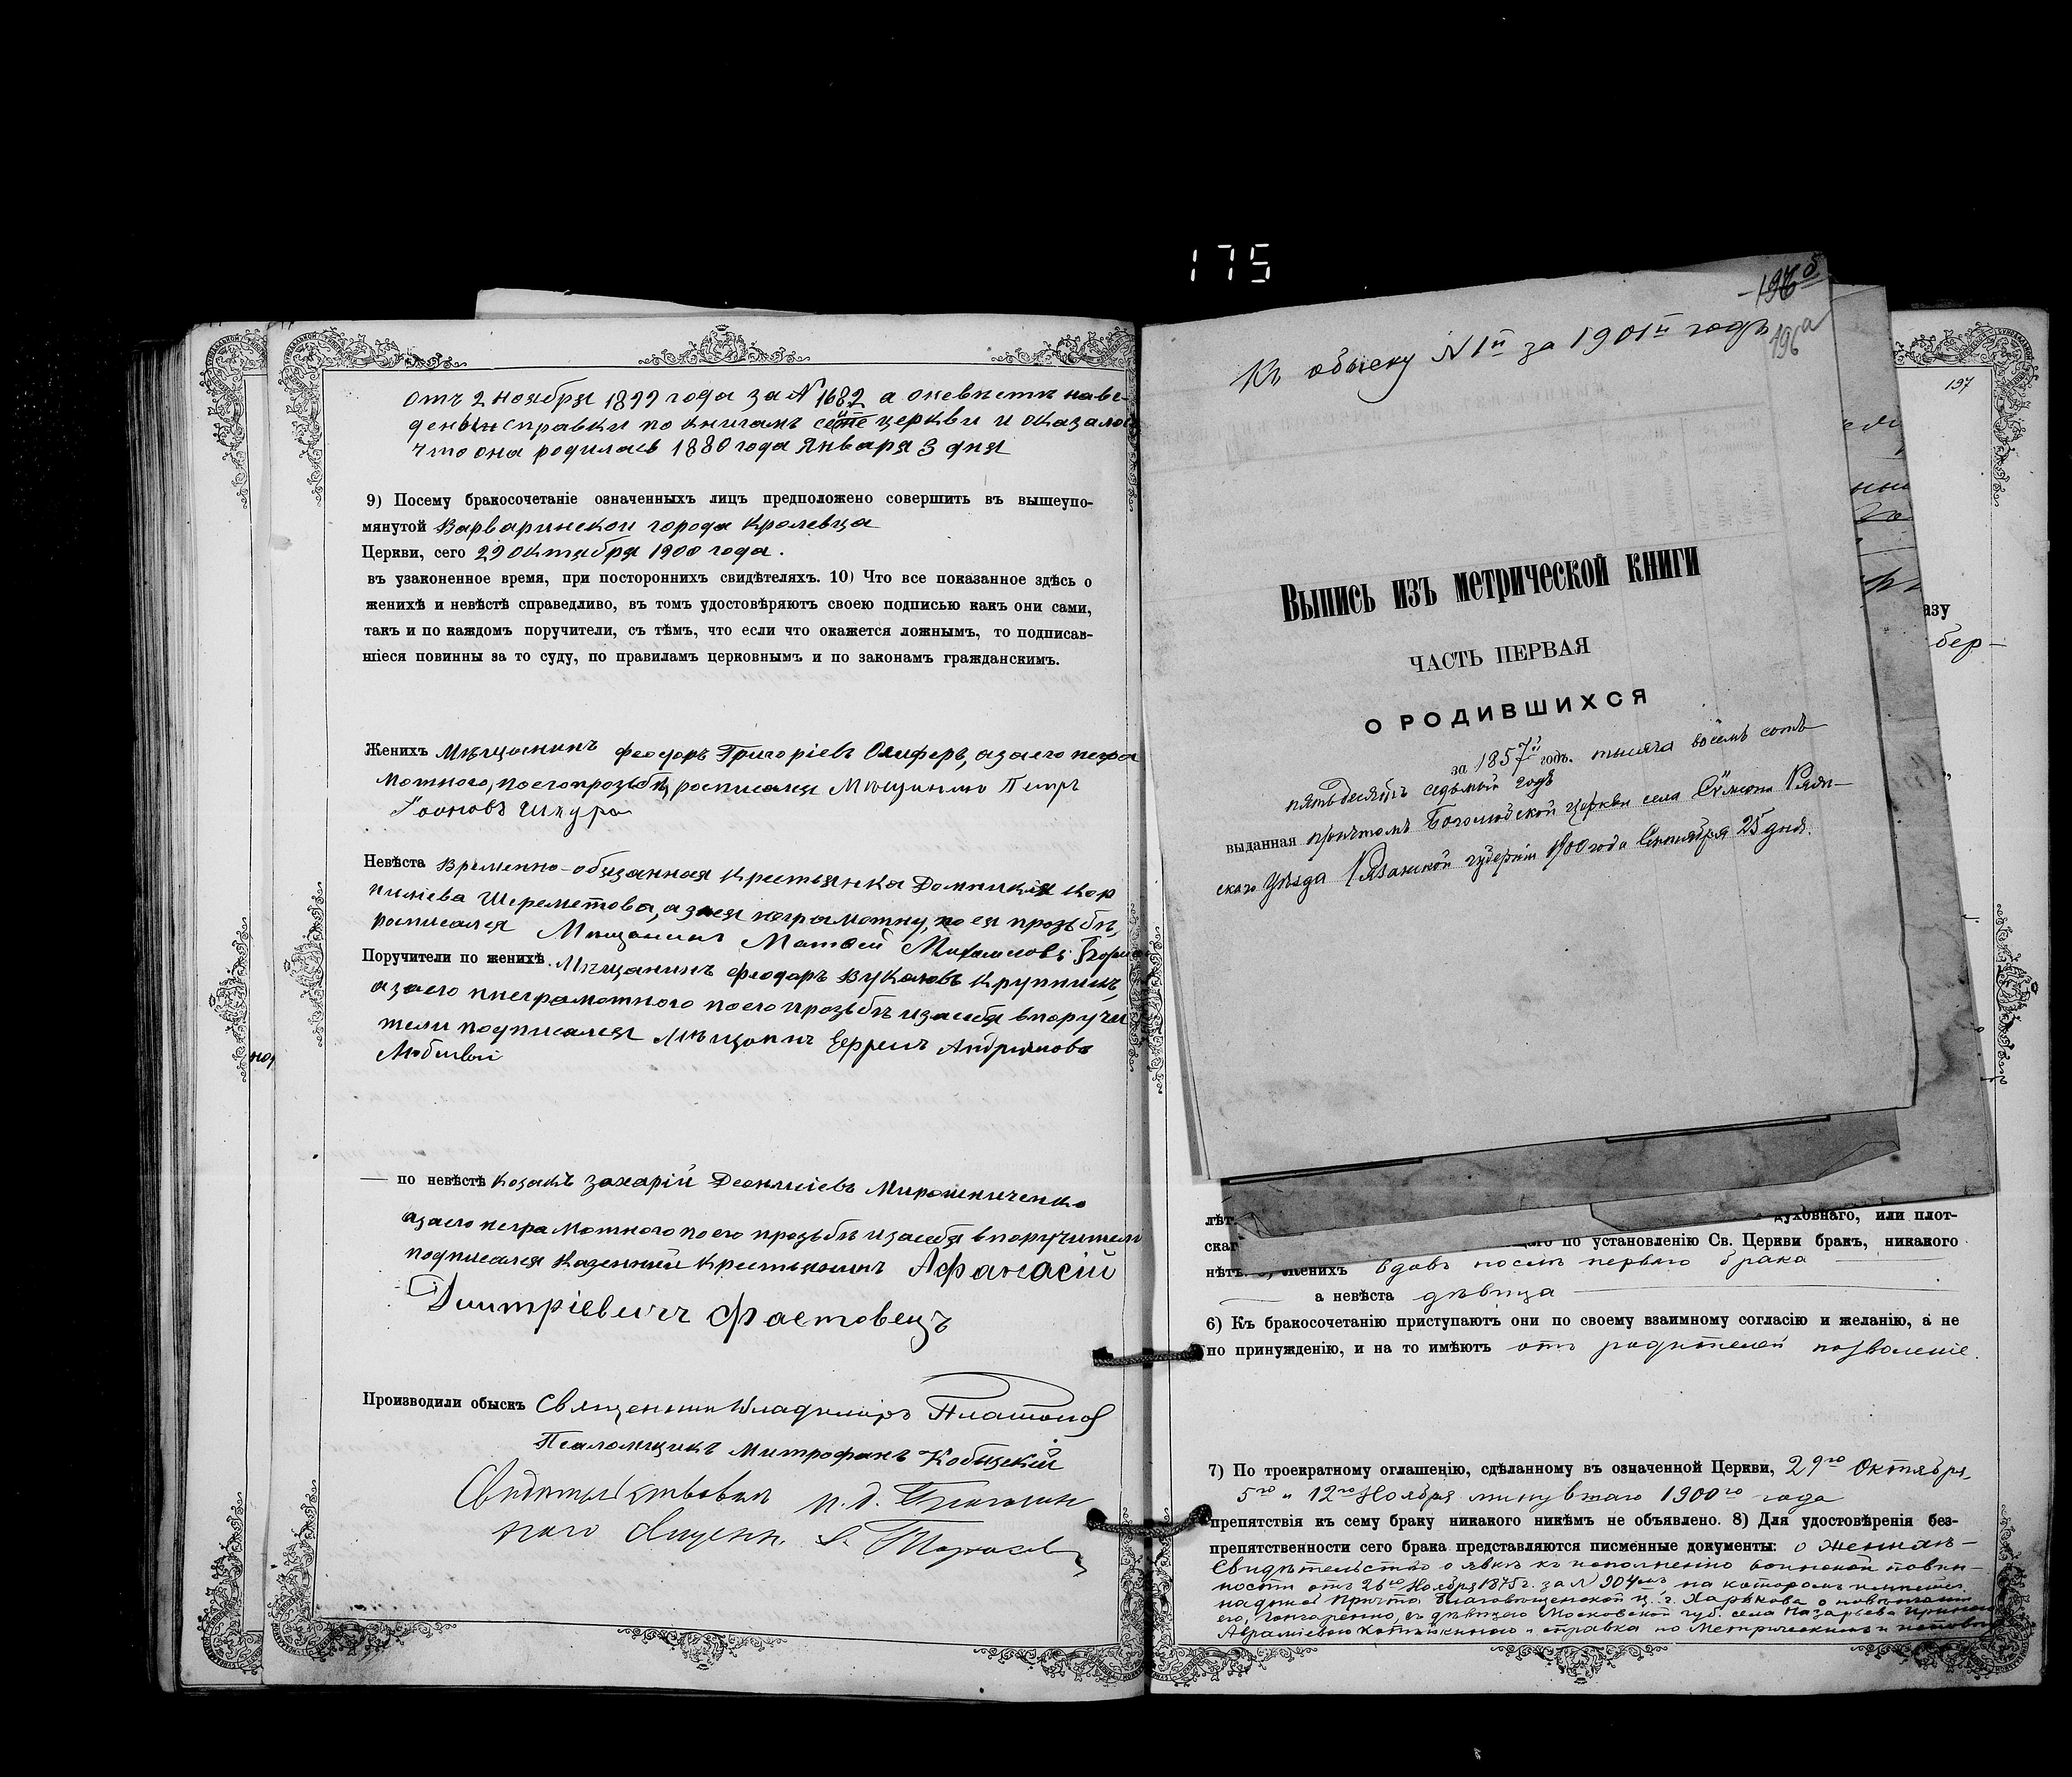 отъ 2 ноября 1899 года за № 1682 а оневѣстѣ наве-
дены справки по книгамъ сей церкви и оказалось
что она родилась 1880 года Января 3 дня
9) Посему бракосочетаніе означенныхъ лицъ предположено совершить въ вышеупо-
мянутой Варваринской города Кролевца
Церкви, сего 29 Октября 1900 года.
въ узаконенное время, при постороннихъ свидѣтеляхъ. 10) Что все показанное здѣсь о
женихѣ и невѣстѣ справедливо, въ томъ удостовѣряютъ своею подписью какъ они сами,
такъ и по каждомъ поручители, съ тѣмъ, что если что окажется ложнымъ, то подписав-
шіеся повинны за то суду, по правиламъ церковнымъ и по законамъ гражданскимъ.
Женихъ Мѣщанинъ Феодоръ Григоріевъ Олиферъ, а за его негра
мотного, по его прозьбѣ, росписался Мѣщанинъ Петръ
Шкура
Невѣста Временно-обязанная Крестьянка Домникія Кор
нилиева Шереметова, а за ея неграмотну, по ея прозьбѣ,
росписался Мѣщанинъ Матвей Михаиловъ
Поручители по женихѣ Мѣщанинъ Феодоръ Вуколовъ Круппинъ,
а за его ниеграмотного по его прозьбѣ и за себя в поручи
тели подписался Мѣщанинъ Ефремъ Андрияновъ
Любивой
— по невѣстѣ Козакъ Захарій Деонисіевъ Мирошниченко
а за его неграмотного по его прозьбѣ и за себя в поручители
подписался Казенный Крестьянинъ Афанасій
Дмитріевичъ Фастовецъ
Производили обыскъ Священникъ Владимиръ Платонов
Псаломщикъ Митрофанъ Кобыцкій
Свидѣтельствовалъ и. д. Благочин
наго Священ.
175
196 б
196 а
Къ обыску № 1й за 1901й годъ
Выпись изъ метрической книги
ЧАСТЬ ПЕРВАЯ
О РОДИВШИХСЯ
за 1857й годъ. тысяча восемь сотъ
пятьдесятъ седьмый годъ
выданная причтомъ церкви села Рязан-
скаго Уѣзда Рязанской губерніи 1900 года Сентября 25 дня.
197
азу
бер-
лѣт духовнаго, или плот-
скаг по установленію Св. Церкви бракъ, никакого
нѣтъ. Женихъ вдовъ послѣ перваго брака
а невѣста дѣвица
6) Къ бракосочетанію приступаютъ они по своему взаимному согласію и желанію, а не
по принужденію, и на то имѣютъ отъ родителей позволеніе.
7) По троекратному оглашенію, сдѣланному въ означенной Церкви, 29го Октября,
5го и 12го Ноября минувшаго 1900го года
препятствія къ сему браку никакого никѣмъ не объявлено. 8) Для удостовѣренія без-
препятственности сего брака представляются писменные документы: о женихѣ —
Свидѣтельство о явкѣ къ исполненію воинской повин-
ности отъ 26го Ноября 1875 г. за № 904мъ на которомъ имѣется
надпись Причта Благовѣщенской ц. г. Харькова о повѣнчаніи
его, Гончаренко, съ дѣвицею Московской губ. села Назарьева Ириною
Авраміевою и справка по Метрическимъ и исповѣд